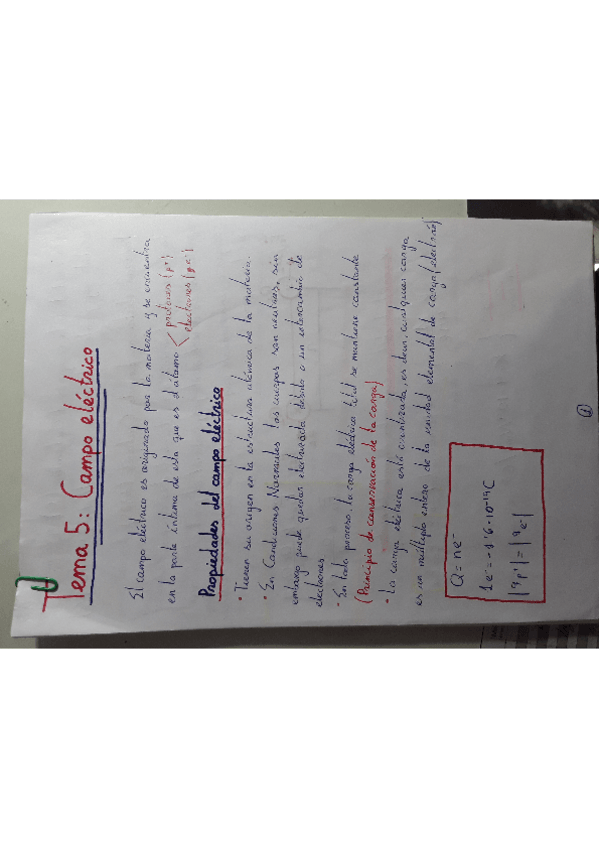 Tema 5: Campo eléctrico
El campo eléctrico es originado por la materia y se encuentra
en la parte interna de esta que es el átomo < protones (p+)
electrones (e-)
Propiedades del campo eléctrico
• Tienen su origen en la estructura atómica de la materia.
• En Condiciones Normales los cuerpos son neutros, sin
embargo puede quedar electrizada debido a un intercambio de
electrones
• En todo proceso, la carga eléctrica total se mantiene constante
(Principio de conservación de la carga)
• La carga eléctrica está cuantizada, es decir, cualquier carga
es un múltiplo entero de la unidad elemental de carga (electrón)
Q = ne-
1e- = -1'6·10-19 C
|qp+| = |qe-|
1